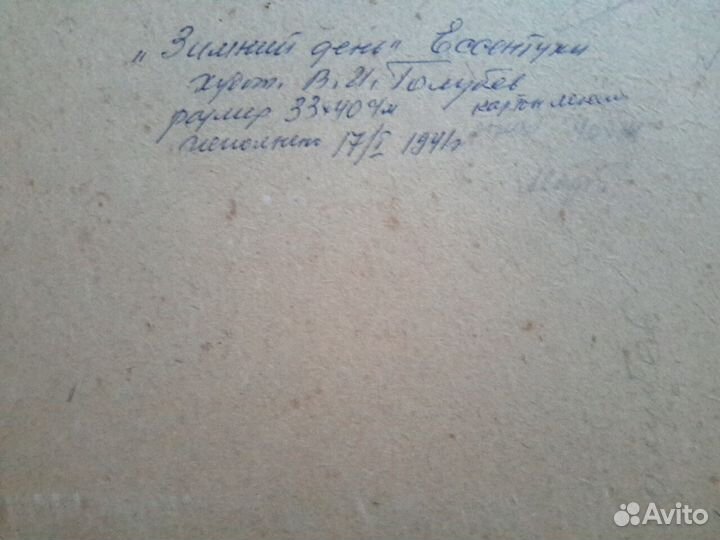 „Зимний день“ Ессентуки
худож. В. И. Голубев
размер 33×40 чм картон
исполнено 17/I 1941г
Avito